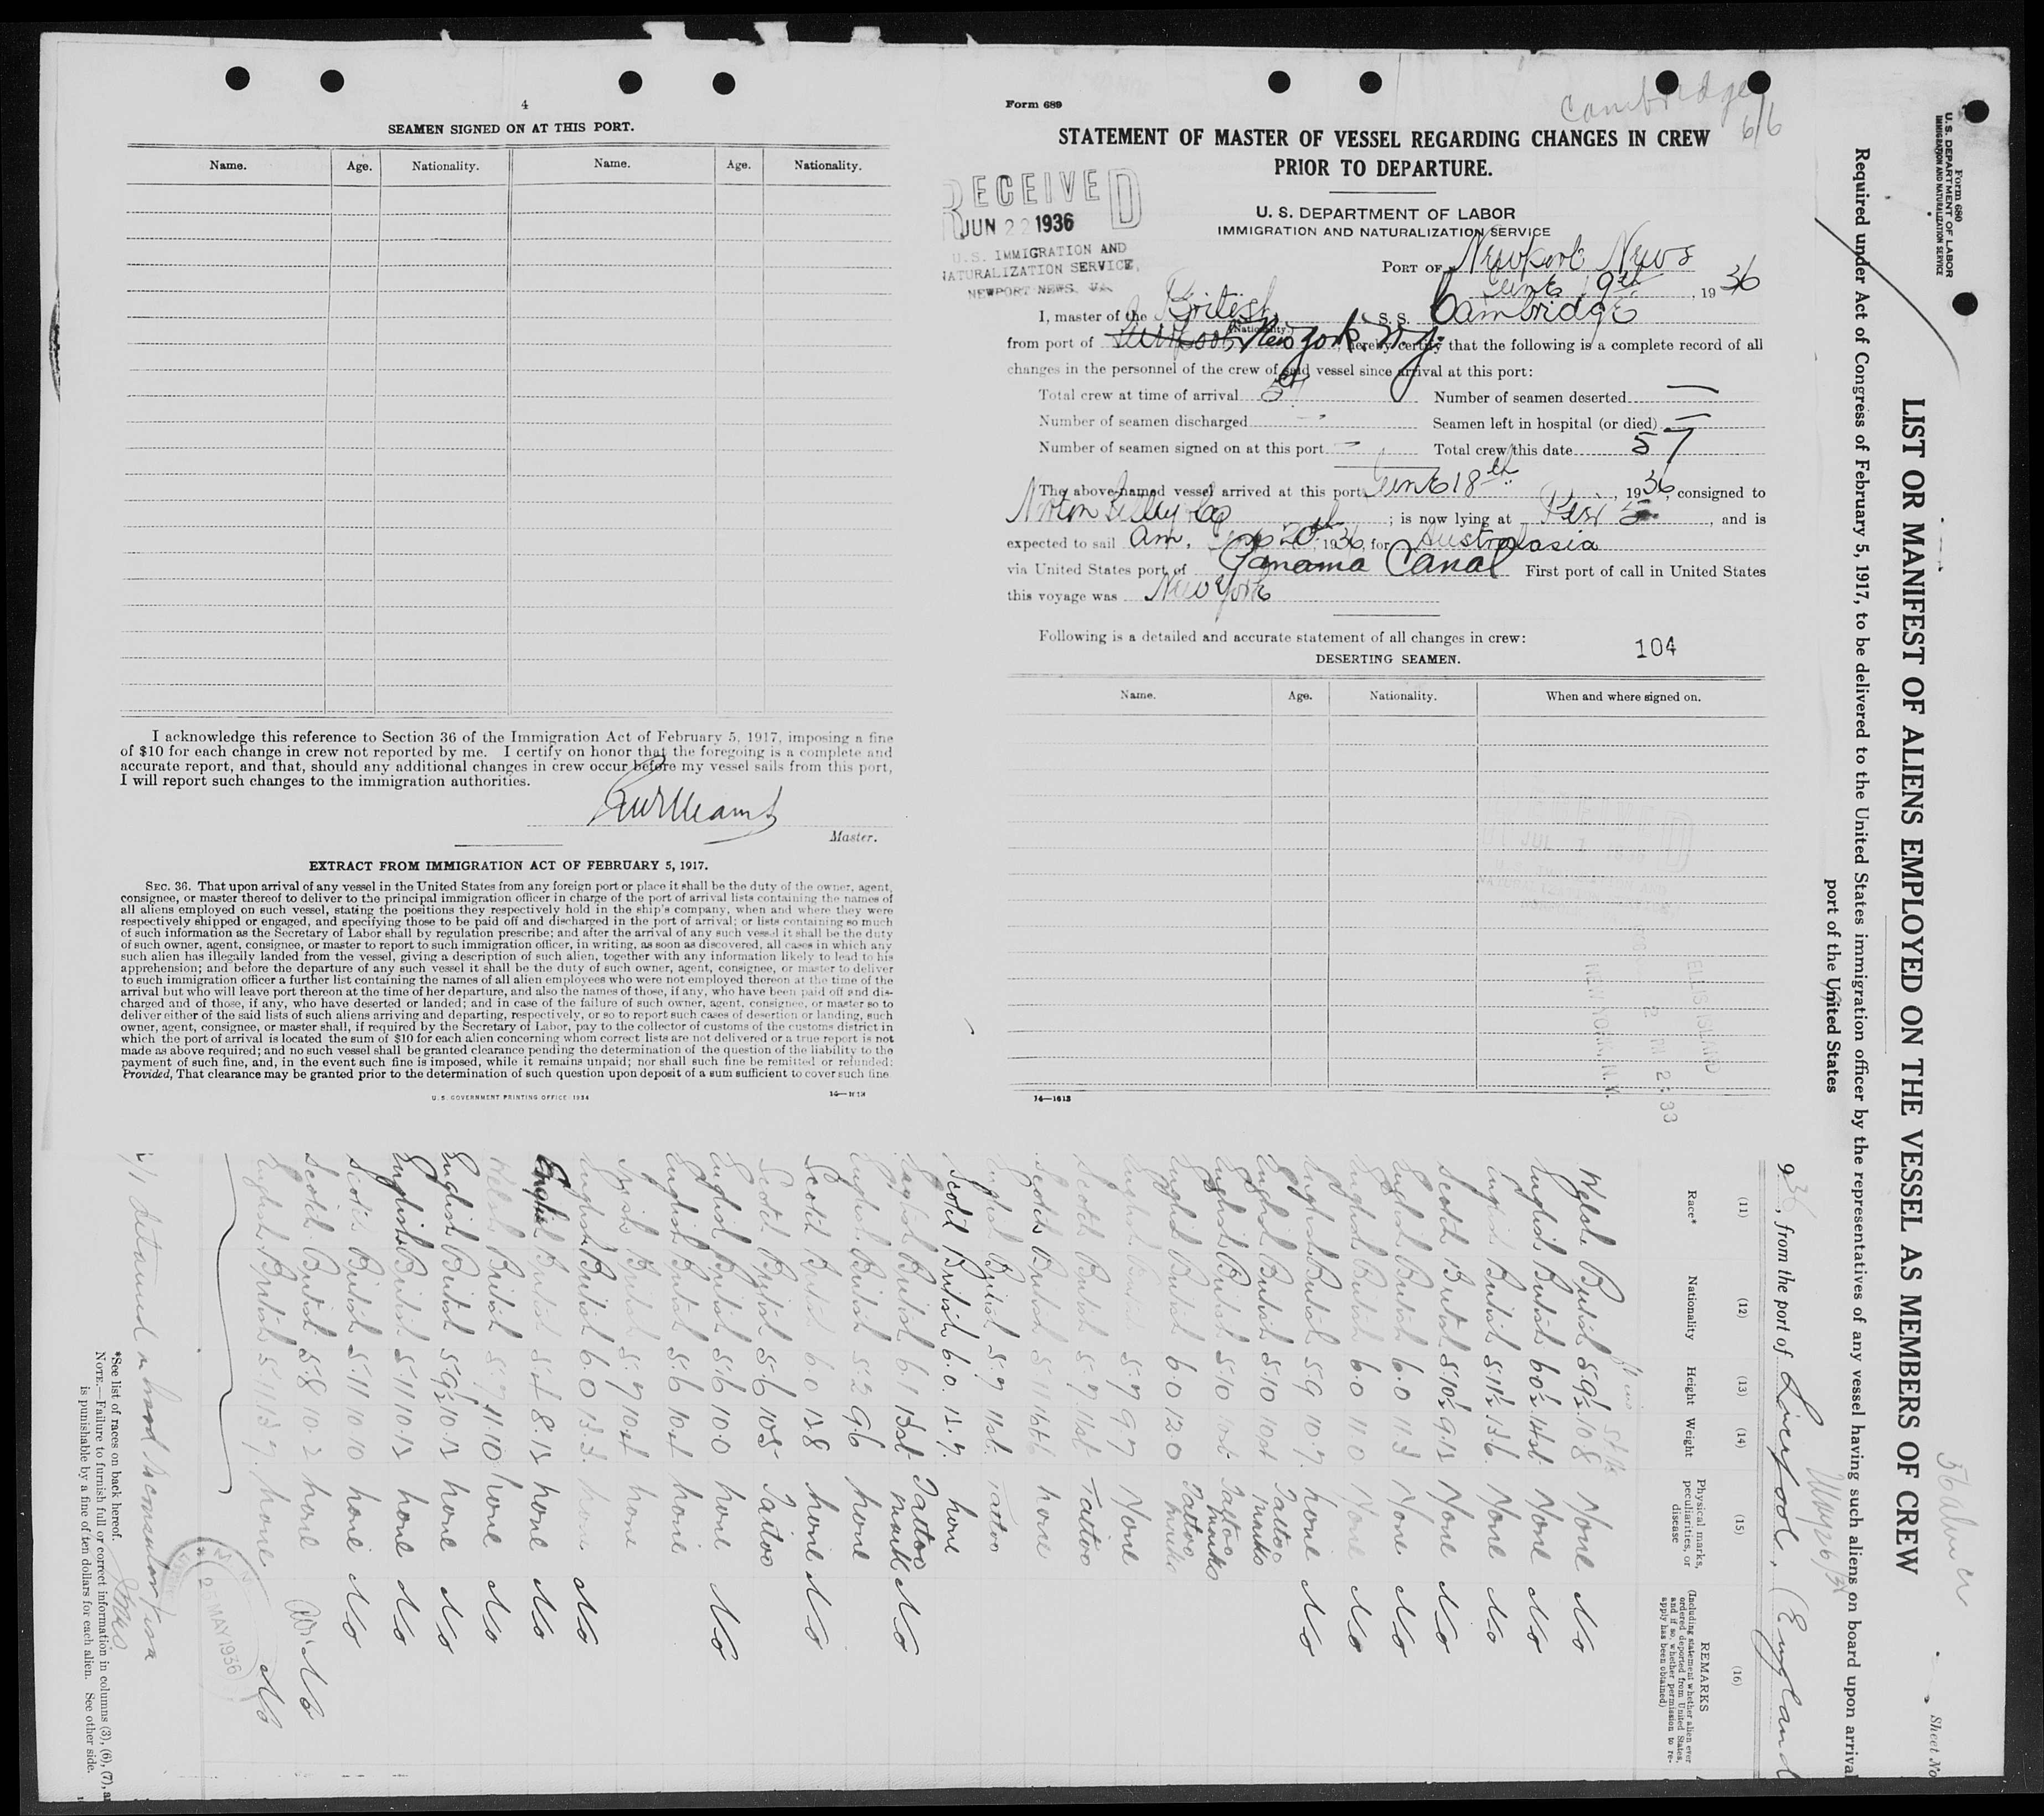 4
SEAMEN SIGNED ON AT THIS PORT.
Name. Age. Nationality. Name. Age. Nationality.
I acknowledge this reference to Section 36 of the Immigration Act of February 5, 1917, imposing a fine
of $10 for each change in crew not reported by me. I certify on honor that the foregoing is a complete and
accurate report, and that, should any additional changes in crew occur before my vessel sails from this port,
I will report such changes to the immigration authorities.
Master.
EXTRACT FROM IMMIGRATION ACT OF FEBRUARY 5, 1917.
SEC. 36. That upon arrival of any vessel in the United States from any foreign port or place it shall be the duty of the owner, agent,
consignee, or master thereof to deliver to the principal immigration officer in charge of the port of arrival lists containing the names of
all aliens employed on such vessel, stating the positions they respectively hold in the ship's company, when and where they were
respectively shipped or engaged, and specifying those to be paid off and discharged in the port of arrival; or lists containing so much
of such information as the Secretary of Labor shall by regulation prescribe; and after the arrival of any such vessel it shall be the duty
of such owner, agent, consignee, or master to report to such immigration officer, in writing, as soon as discovered, all cases in which any
such alien has illegally landed from the vessel, giving a description of such alien, together with any information likely to lead to his
apprehension; and before the departure of any such vessel it shall be the duty of such owner, agent, consignee, or master to deliver
to such immigration officer a further list containing the names of all alien employees who were not employed thereon at the time of the
arrival but who will leave port thereon at the time of her departure, and also the names of those, if any, who have been paid off and dis-
charged and of those, if any, who have deserted or landed; and in case of the failure of such owner, agent, consignee, or master so to
deliver either of the said lists of such aliens arriving and departing, respectively, or so to report such cases of desertion or landing, such
owner, agent, consignee, or master shall, if required by the Secretary of Labor, pay to the collector of customs of the customs district in
which the port of arrival is located the sum of $10 for each alien concerning whom correct lists are not delivered or a true report is not
made as above required; and no such vessel shall be granted clearance pending the determination of the question of the liability to the
payment of such fine, and, in the event such fine is imposed, while it remains unpaid; nor shall such fine be remitted or refunded:
Provided, That clearance may be granted prior to the determination of such question upon deposit of a sum sufficient to cover such fine
U. S. GOVERNMENT PRINTING OFFICE 1934
Form 689
Cambridge
6/6
STATEMENT OF MASTER OF VESSEL REGARDING CHANGES IN CREW
PRIOR TO DEPARTURE.
RECEIVED
JUN 22 1936
U.S. IMMIGRATION AND
NATURALIZATION SERVICE,
NEWPORT NEWS, VA.
U. S. DEPARTMENT OF LABOR
IMMIGRATION AND NATURALIZATION SERVICE
PORT OF Newport News
June 19th, 1936
I, master of the British S. S. Cambridge
(Nationality.)
from port of New York, N.Y. hereby certify that the following is a complete record of all
changes in the personnel of the crew of said vessel since arrival at this port:
Total crew at time of arrival 57 Number of seamen deserted —
Number of seamen discharged — Seamen left in hospital (or died) —
Number of seamen signed on at this port — Total crew this date 57
The above-named vessel arrived at this port June 18th, 1936, consigned to
Norton Lilly Co ; is now lying at Pier 5, and is
expected to sail am. June 20th, 1936, for Australasia
via United States port of Panama Canal First port of call in United States
this voyage was New York
Following is a detailed and accurate statement of all changes in crew:
104
DESERTING SEAMEN.
Name. Age. Nationality. When and where signed on.
ELLIS ISLAND
NEW YORK, N.Y.
Form 680
U. S. DEPARTMENT OF LABOR
IMMIGRATION AND NATURALIZATION SERVICE
Sheet No
LIST OR MANIFEST OF ALIENS EMPLOYED ON THE VESSEL AS MEMBERS OF CREW
Required under Act of Congress of February 5, 1917, to be delivered to the United States immigration officer by the representatives of any vessel having such aliens on board upon arrival
port of the United States
936, from the port of Liverpool, (England
(11) (12) (13) (14) (15) (16)
Race* Nationality Height Weight Physical marks, peculiarities, or disease
REMARKS
(Including statement whether alien ever
ordered deported from United States,
and if so, whether permission to re-
apply has been obtained)
Welsh British 5.9½ 10.8 None No
English British 6.0½ 14st None No
English British 5.11½ 13.6 None No
Scotch British 5.10½ 9.13 None No
English British 6.0 11.3 None No
English British 6.0 11.0 None No
English British 5.9 10.7 None No
English British 5.10 10st Tattoo marks
English British 5.10 10st Tattoo marks
English British 6.0 12.0 Tattoo marks
English British 5.7 9.7 None
Scotch British 5.7 11st Tattoo
Scotch British 5.11 none
English British 5.7 11st. Tattoo
Scotch British 6.0. 11.7. none
English British 6.1 13st Tattoo mark No
English British 5.2 9.6 none
Scotch British 6.0 13.8 none No
Scotch British 5.6 10.5 Tattoo
English British 5.6 10.0 none No
English British 5.6 10st none
British 5.7 10st none
English British 6.0 13.3. none No
English British 8.13 none No
Welsh British 5.7 11.10 none No
English British 5.9½ 10.13 none No
English British 5.11 10.13 none No
Scotch British 5.11 10.10 none No
Scotch British 5.8 10.2 none No
English British 5.11 13.7. none No
28 MAY 1936
*See list of races on back hereof.
NOTE.—Failure to furnish full or correct information in columns (3), (6), (7),
is punishable by a fine of ten dollars for each alien. See other side.